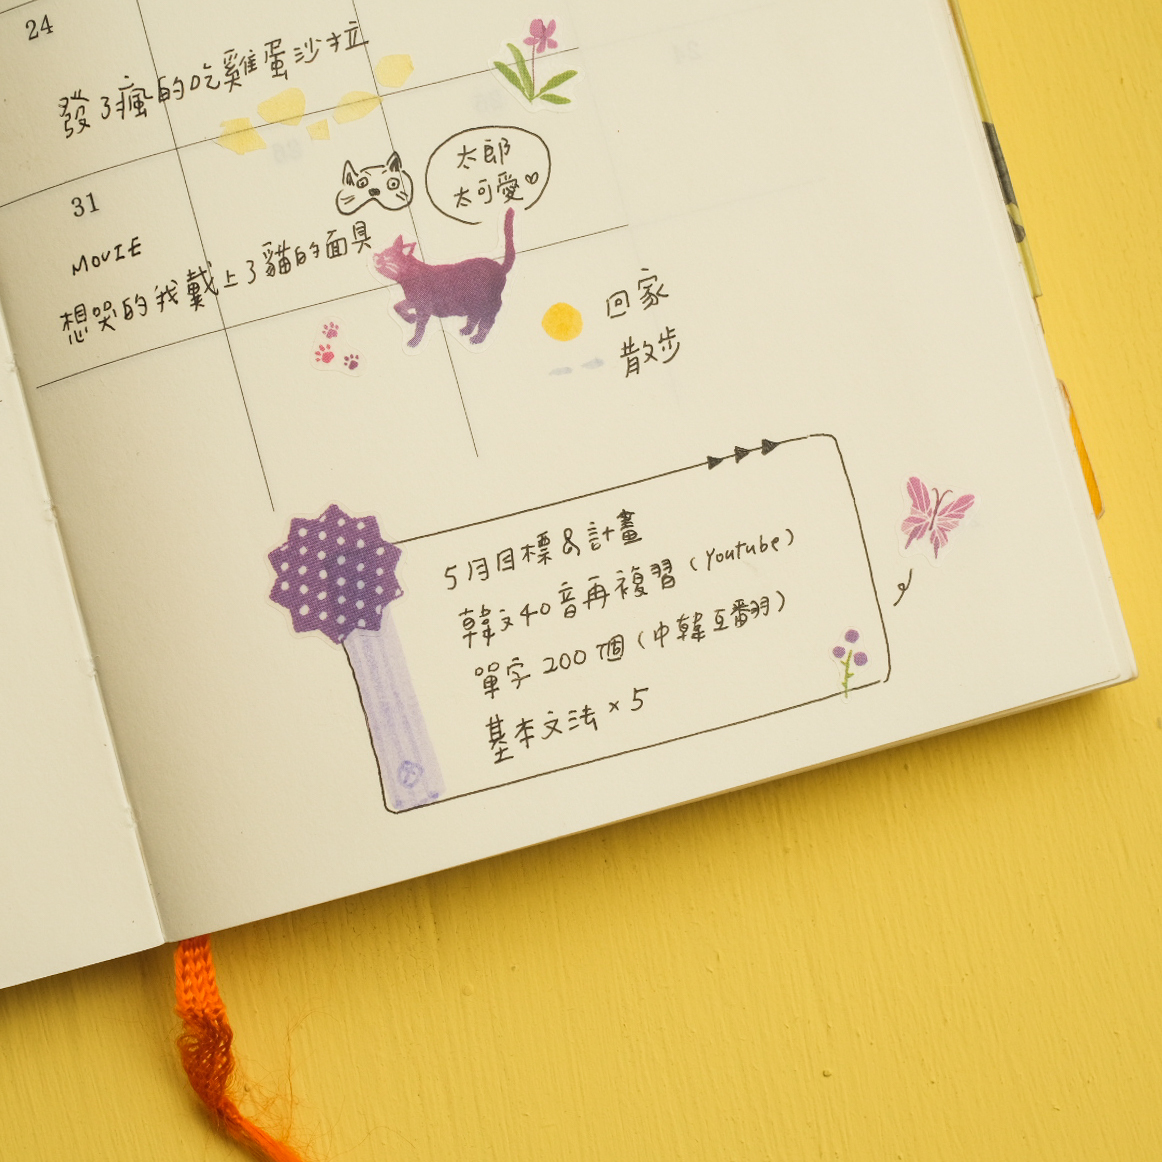 24
發了瘋的吃雞蛋沙拉
31
MOVIE
想哭的我戴上了貓的面具
太郎
太可愛♡
回家
散步
5月目標&計畫
韓文40音再複習(Youtube)
單字200個(中韓互翻)
基本文法×5